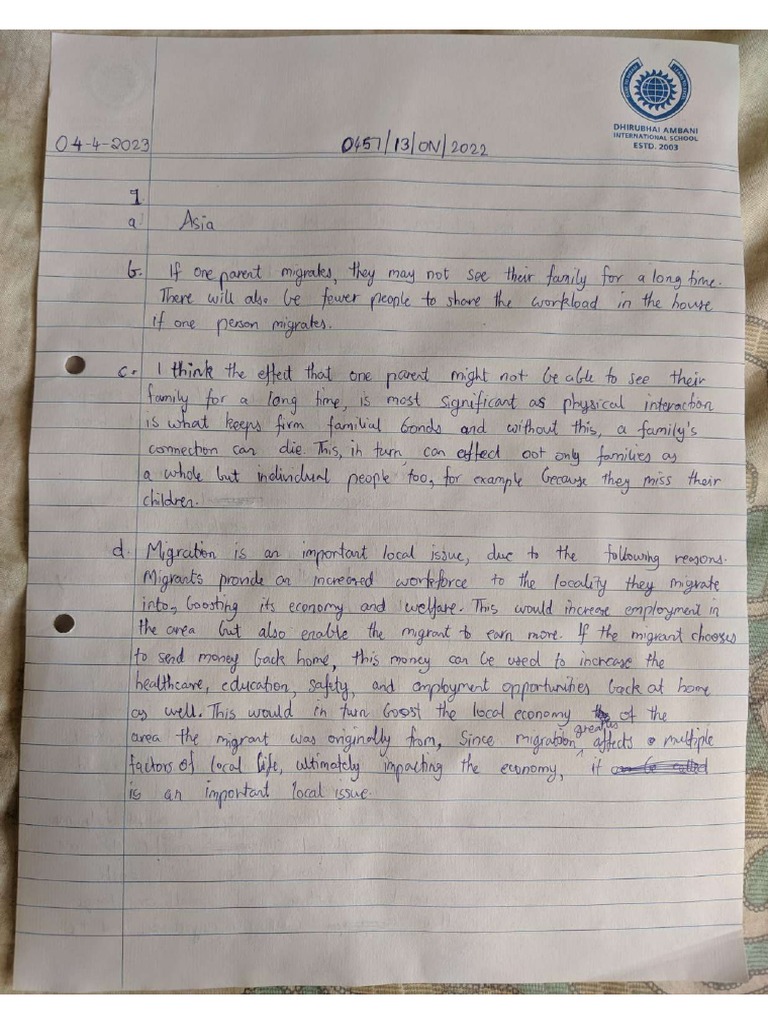 DHIRUBHAI AMBANI
INTERNATIONAL SCHOOL
ESTD. 2003
04-4-2023 0457/13/ON/2022
1
a. Asia
b. If one parent migrates, they may not see their family for a long time.
There will also be fewer people to share the workload in the house
if one person migrates.
c. I think the effect that one parent might not be able to see their
family for a long time, is most significant as physical interaction
is what keeps firm familial bonds and without this, a family's
connection can die. This, in turn, can effect not only families as
a whole but individual people too, for example because they miss their
children.
d. Migration is an important local issue, due to the following reasons.
Migrants provide an increased workforce to the locality they migrate
into, boosting its economy and welfare. This would increase employment in
the area but also enable the migrant to earn more. If the migrant chooses
to send money back home, this money can be used to increase the
healthcare, education, safety, and employment opportunities back at home
as well. This would in turn boost the local economy of the
area the migrant was originally from, Since migration greatly affects multiple
factors of local life, ultimately impacting the economy, it
is an important local issue.